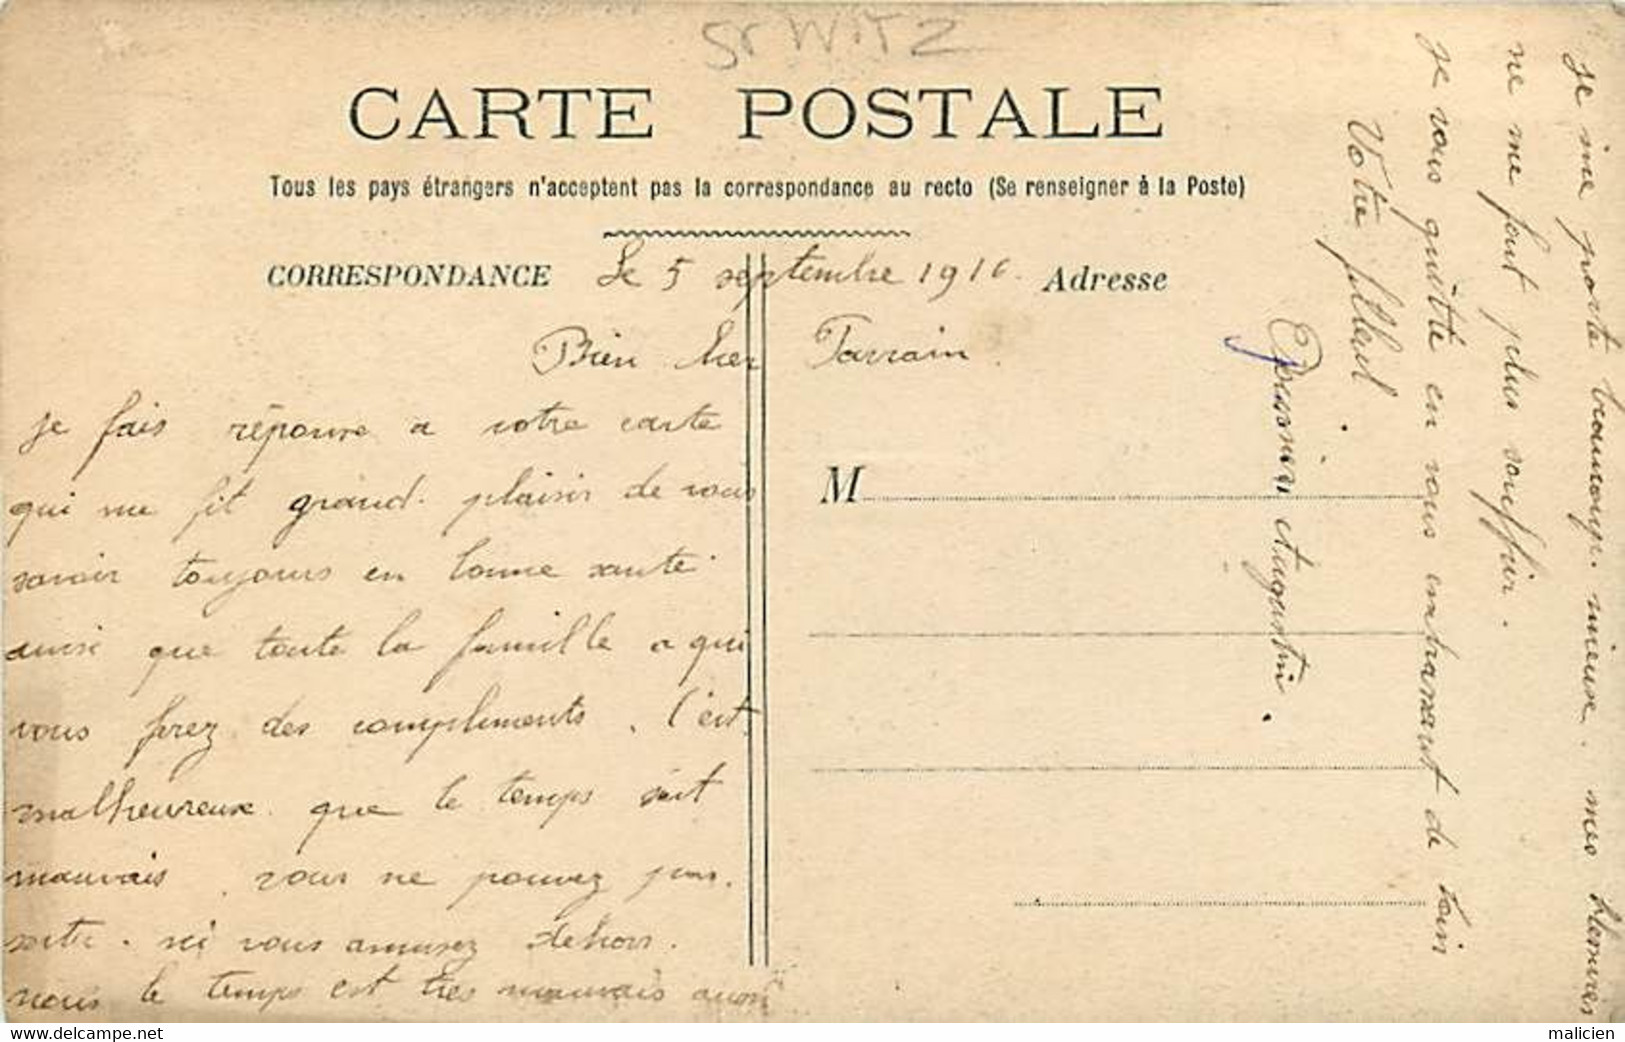 St WITZ
CARTE POSTALE
Tous les pays étrangers n'acceptent pas la correspondance au recto (Se renseigner à la Poste)
CORRESPONDANCE
Le 5 septembre 1916
Adresse
Bien cher Parrain
je fais réponse a votre carte
qui me fit grand plaisir de vous
savoir toujours en bonne santé
ainsi que toute la famille a qui
vous frez des compliments. C'est
malheureuse que le temps soit
mauvais vous ne pouvez pas
sortir. ni vous amusez dehors.
nous le temps est tres mauvais aussi
M
je me porte beaucoup mieuse. mes blessures
ne me font plus souffrir.
je vous quitte en vous embrassant de loin
Votre filleul
Augustin.
delcampe.net
malicien